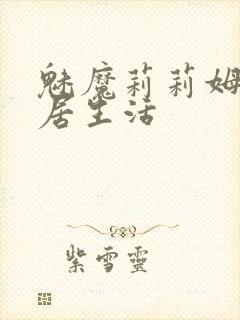 魅魔莉莉姆
居生活
紫雪靈